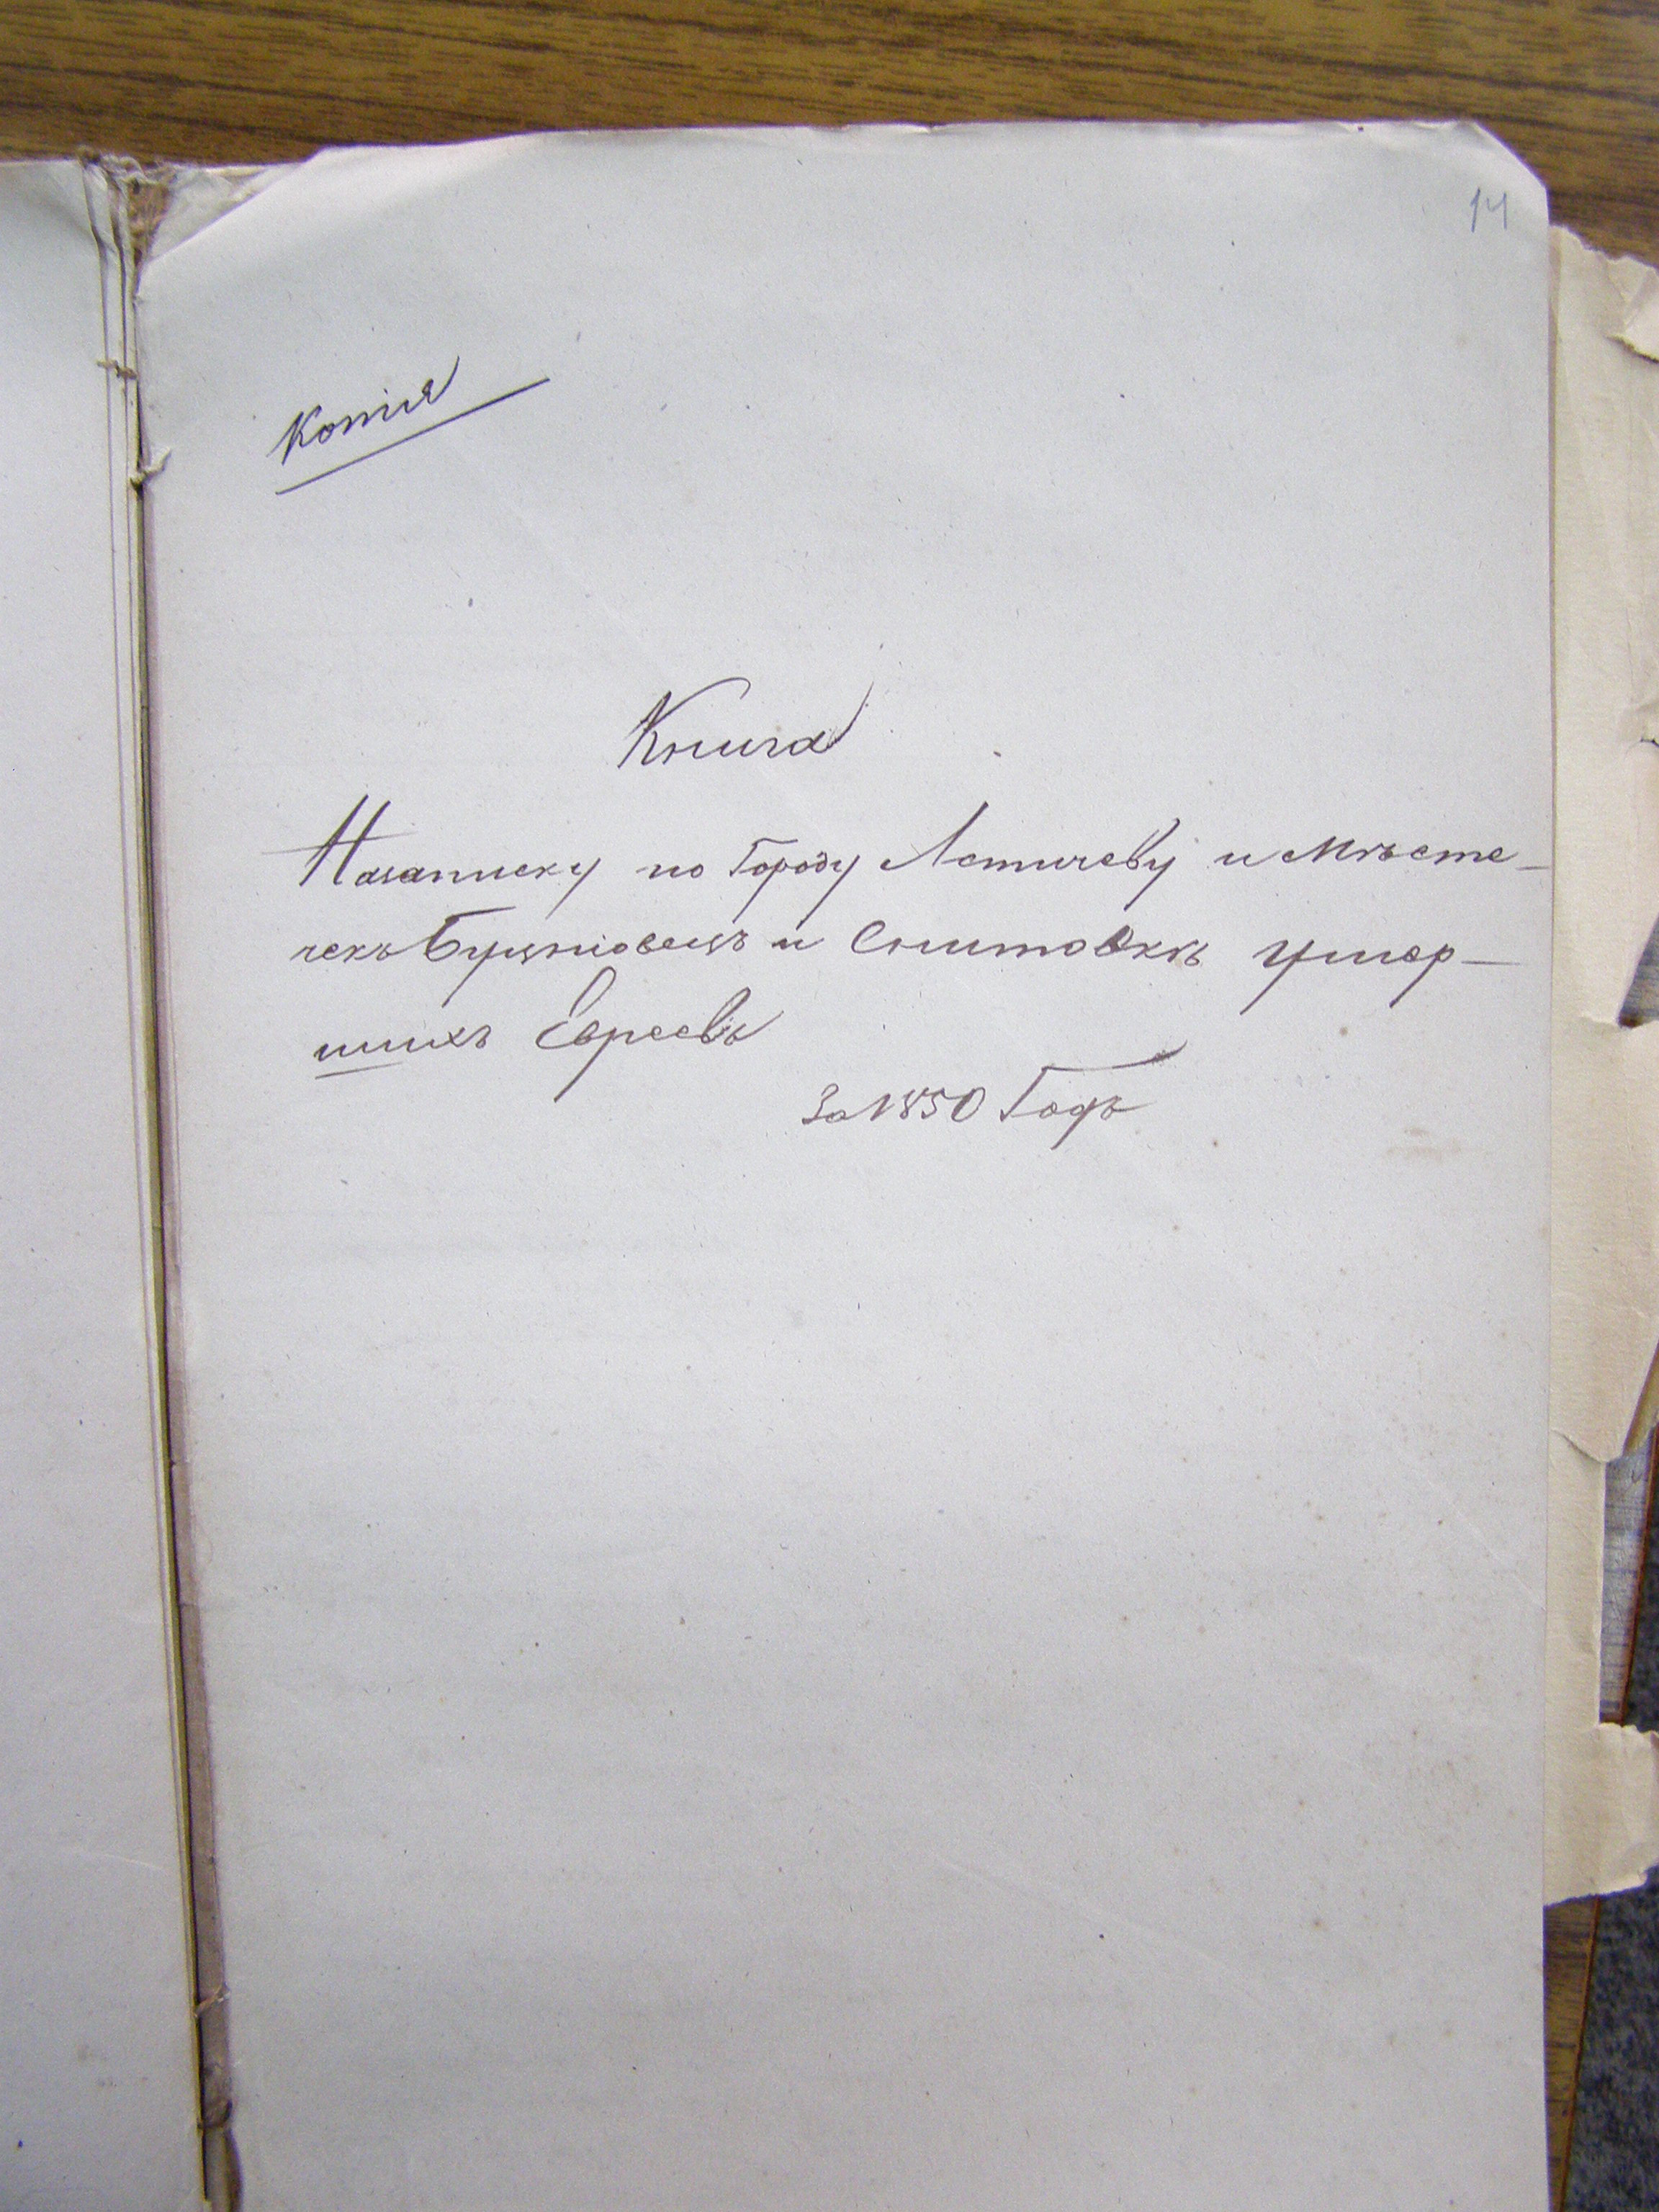 14
Копія
Книга
На записку по Городу Летичеву и Мѣсте-
чекъ Буцновецъ и Снитовкѣ умер-
шихъ Евреевъ
За 1850 Годъ